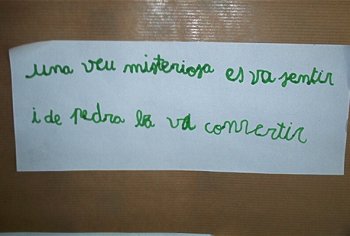 una veu misteriosa es va sentir
i de pedra la va convertir